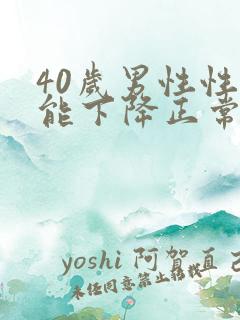 40歲男性性
能下降正常
yoshi 阿賀直己
未经同意禁止转载